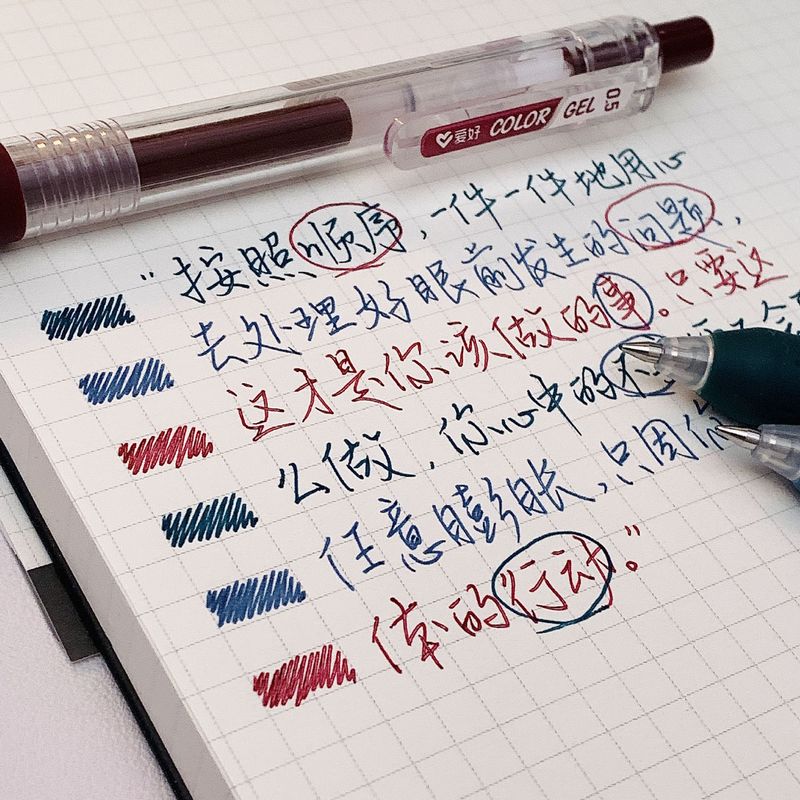 爱好 COLOR GEL 0.5
"按照顺序,一件一件地用心
去处理好眼前发生的问题,
这才是你该做的事。只要这
么做,你心中的不
任意膨胀,只因你
体的行动。"